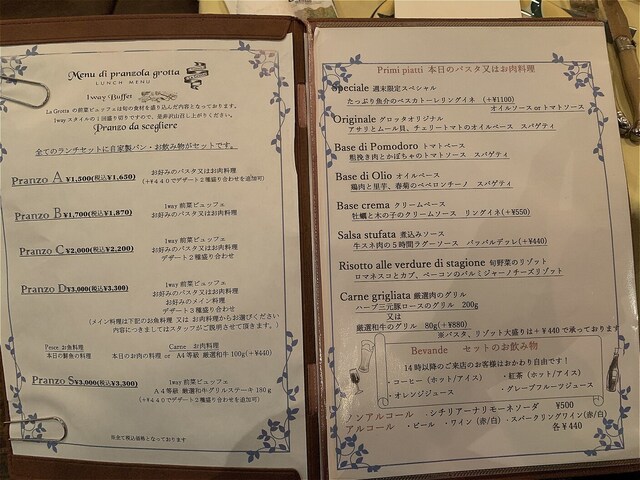 Menu di pranzola grotta
LUNCH MENU
1way Buffet
La Grotta の前菜ビュッフェは旬の食材を盛り込んだ内容となっております。
1wayスタイルの1回盛り切りですので、是非沢山召し上がりください。
Pranzo da scegliere
全てのランチセットに自家製パン・お飲み物がセットです。
Pranzo A ¥1,500(税込¥1,650)
お好みのパスタ又はお肉料理
(+¥440でデザート2種盛り合わせを追加可)
Pranzo B ¥1,700(税込¥1,870)
1way 前菜ビュッフェ
お好みのパスタ又はお肉料理
Pranzo C ¥2,000(税込¥2,200)
1way 前菜ビュッフェ
お好みのパスタ又はお肉料理
デザート2種盛り合わせ
Pranzo D ¥3,000(税込¥3,300)
1way 前菜ビュッフェ
お好みのパスタ 又は お肉料理
お好みのメイン料理
デザート3種盛り合わせ
(メイン料理は下記のお魚料理 又は お肉料理からお選びください
内容につきましてはスタッフがご説明させて頂きます。)
Pesce お魚料理
本日の鮮魚の料理
Carne お肉料理
本日のお肉の料理 or A4等級 厳選和牛 100g(+¥440)
Pranzo S ¥3,000(税込¥3,300)
1way 前菜ビュッフェ
A4等級 厳選和牛グリルステーキ 180g
(+¥440でデザート2種盛り合わせを追加可)
※全て税込価格となっております
Primi piatti 本日のパスタ又はお肉料理
Speciale 週末限定スペシャル
たっぷり魚介のペスカトーレリングイネ (+¥1100)
オイルソース or トマトソース
Originale グロッタオリジナル
アサリとムール貝、チェリートマトのオイルベース スパゲティ
Base di Pomodoro トマトベース
粗挽き肉とかぼちゃのトマトソース スパゲティ
Base di Olio オイルベース
鶏肉と里芋、春菊のペペロンチーノ スパゲティ
Base crema クリームベース
牡蠣と木の子のクリームソース リングイネ(+¥550)
Salsa stufata 煮込みソース
牛スネ肉の5時間ラグーソース パッパルデッレ(+¥440)
Risotto alle verdure di stagione 旬野菜のリゾット
ロマネスコとカブ、ベーコンのパルミジャーノチーズリゾット
Carne grigliata 厳選肉のグリル
ハーブ三元豚ロースのグリル 200g
又は
厳選和牛のグリル 80g(+¥880)
※パスタ、リゾット大盛りは+¥440で承っております
Bevande セットのお飲み物
14時以降のご来店のお客様はおかわり自由です!
・コーヒー(ホット/アイス) ・紅茶(ホット/アイス)
・オレンジジュース ・グレープフルーツジュース
ノンアルコール ・シチリアーナリモーネソーダ ¥500
アルコール ・ビール ・ワイン(赤/白) ・スパークリングワイン(赤/白)
各¥440